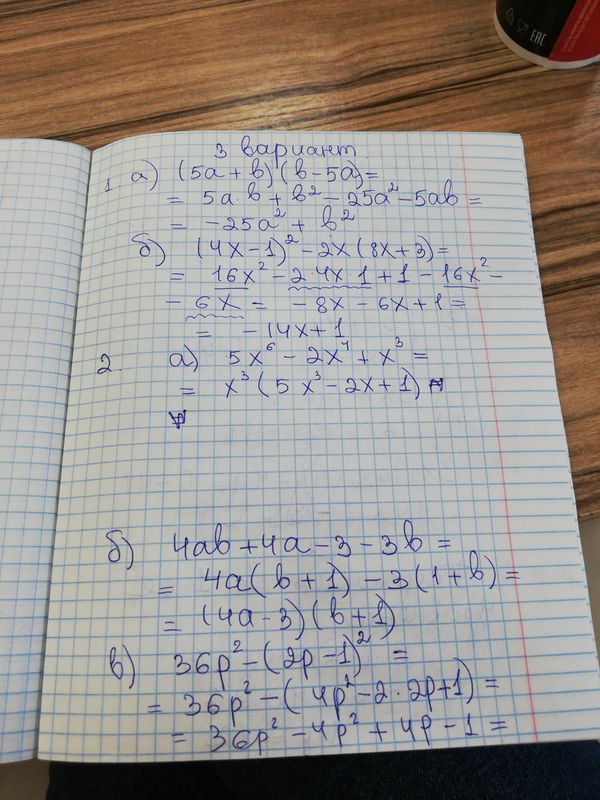 EAC
3 вариант
1. а) (5a + b) (b - 5a) =
= 5a·b + b² - 25a² - 5ab =
= -25a² + b²
б) (4x - 1)² - 2x (8x + 3) =
= 16x² - 2·4x·1 + 1 - 16x² -
- 6x = - 8x - 6x + 1 =
= - 14x + 1
2. а) 5x⁶ - 2x⁴ + x³ =
= x³ (5x³ - 2x + 1)
б) 4ab + 4a - 3 - 3b =
= 4a (b + 1) - 3 (1 + b) =
= (4a - 3) (b + 1)
в) 36p² - (2p - 1)² =
= 36p² - (4p² - 2·2p + 1) =
= 36p² - 4p² + 4p - 1 =